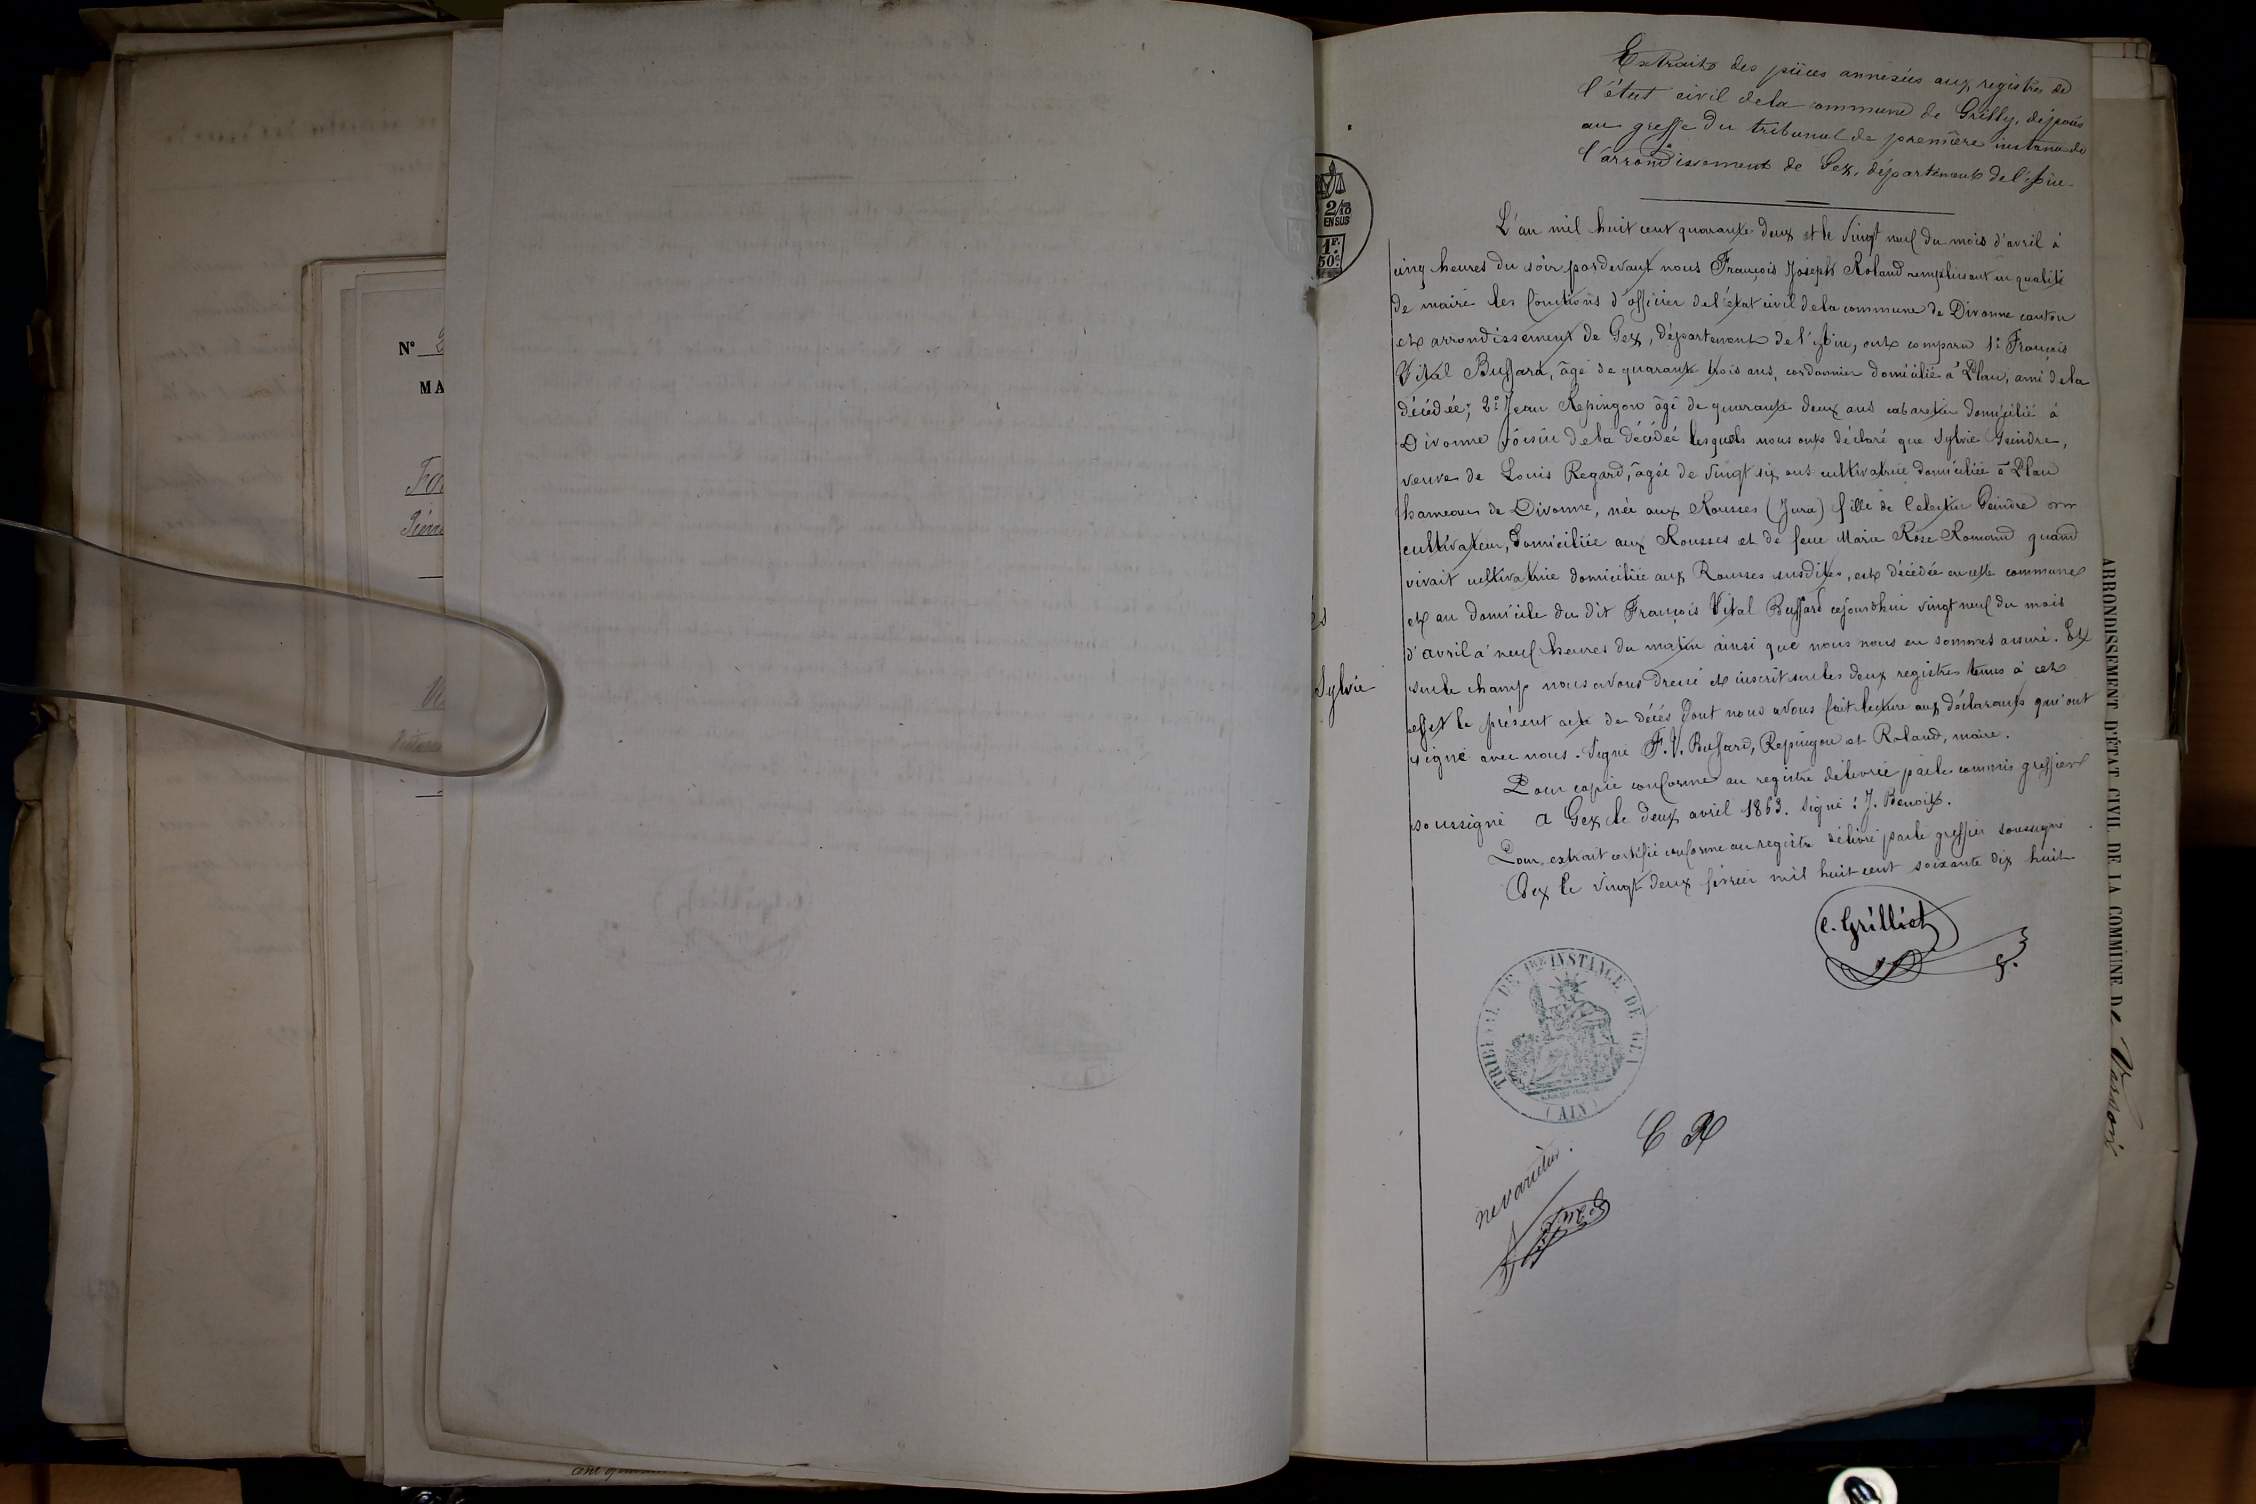 N°
MA
Extraits des pièces annexées aux registres de
l'état civil de la commune de Grilly, déposés
au greffe du tribunal de première instance de
l'arrondissement de Gex, département de l'Ain.
2/10
EN SUS
1F.
50c
L'an mil huit cent quarante deux et le vingt neuf du mois d'avril à
cinq heures du soir pardevant nous François Joseph Roland remplissant en qualité
de maire les fonctions d'officier de l'état civil de la commune de Divonne canton
et arrondissement de Gex, département de l'Ain, ont comparu 1° François
Vital Buffard, âgé de quarante trois ans, cordonnier domicilié à Plan, ami de la
décédée; 2° Jean Repingon âgé de quarante deux ans cabaretier domicilié à
Divonne voisin de la décédée lesquels nous ont déclaré que Sylvie Geindre,
veuve de Louis Regard, âgée de vingt six ans cultivatrice domiciliée à Plan
hameau de Divonne, née aux Rousses (Jura) fille de Celestin Geindre
cultivateur, domiciliée aux Rousses et de feue Marie Rose Romand quand
vivait cultivatrice domiciliée aux Rousses susdites, est décédée en cette commune
et au domicile du dit François Vital Buffard cejourd'hui vingt neuf du mois
d'avril à neuf heures du matin ainsi que nous nous en sommes assuré. Et
sur le champ nous avons dressé et inscrit sur les deux registres tenus à cet
Sylvie
effet le présent acte de décés dont nous avons fait lecture aux déclarants qui ont
signé avec nous. Signé F. V. Buffard, Repingon et Roland, maire.
Pour copie conforme au registre délivrée par le commis greffier
soussigné A Gex le deux avril 1863. Signé : J. Benoit.
Pour extrait certifié conforme au registre délivré par le greffier soussigné
Gex le vingt deux février mil huit cent soixante dix huit
C. Grilliet
TRIBUNAL DE 1ERE INSTANCE DE GEX
(AIN)
ne varietur.
ARRONDISEMENT D'ÉTAT CIVIL DE LA COMMUNE DE